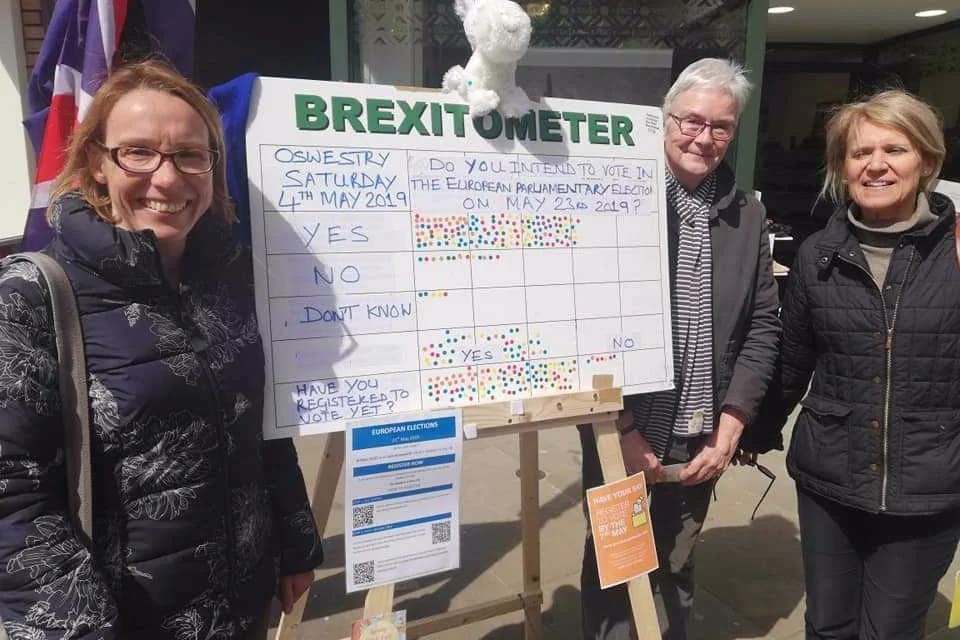 BREXITOMETER
OSWESTRY
SATURDAY
4TH MAY 2019
DO YOU INTEND TO VOTE IN
THE EUROPEAN PARLIAMENTARY ELECTION
ON MAY 23RD 2019?
YES
NO
DON'T KNOW
YES
NO
HAVE YOU
REGISTERED TO
VOTE YET?
EUROPEAN ELECTIONS
23rd May 2019
REGISTER NOW
HAVE YOUR SAY
REGISTER
TO VOTE
BY THE
7TH
MAY